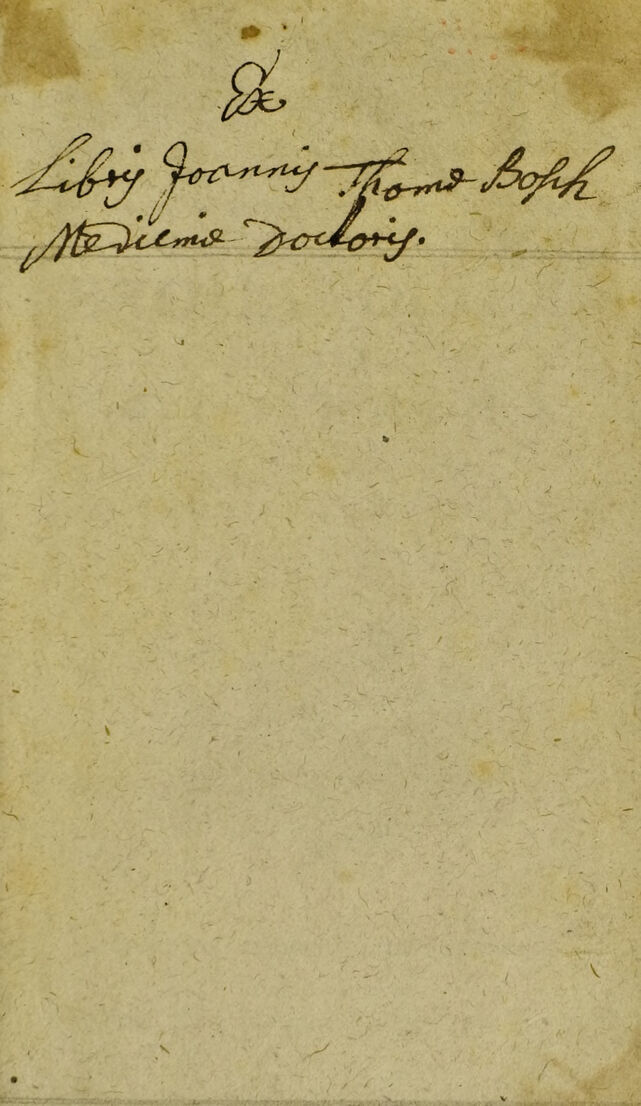 Ex
Libris Joannis Thomæ Bosch
Medicinæ Doctoris.